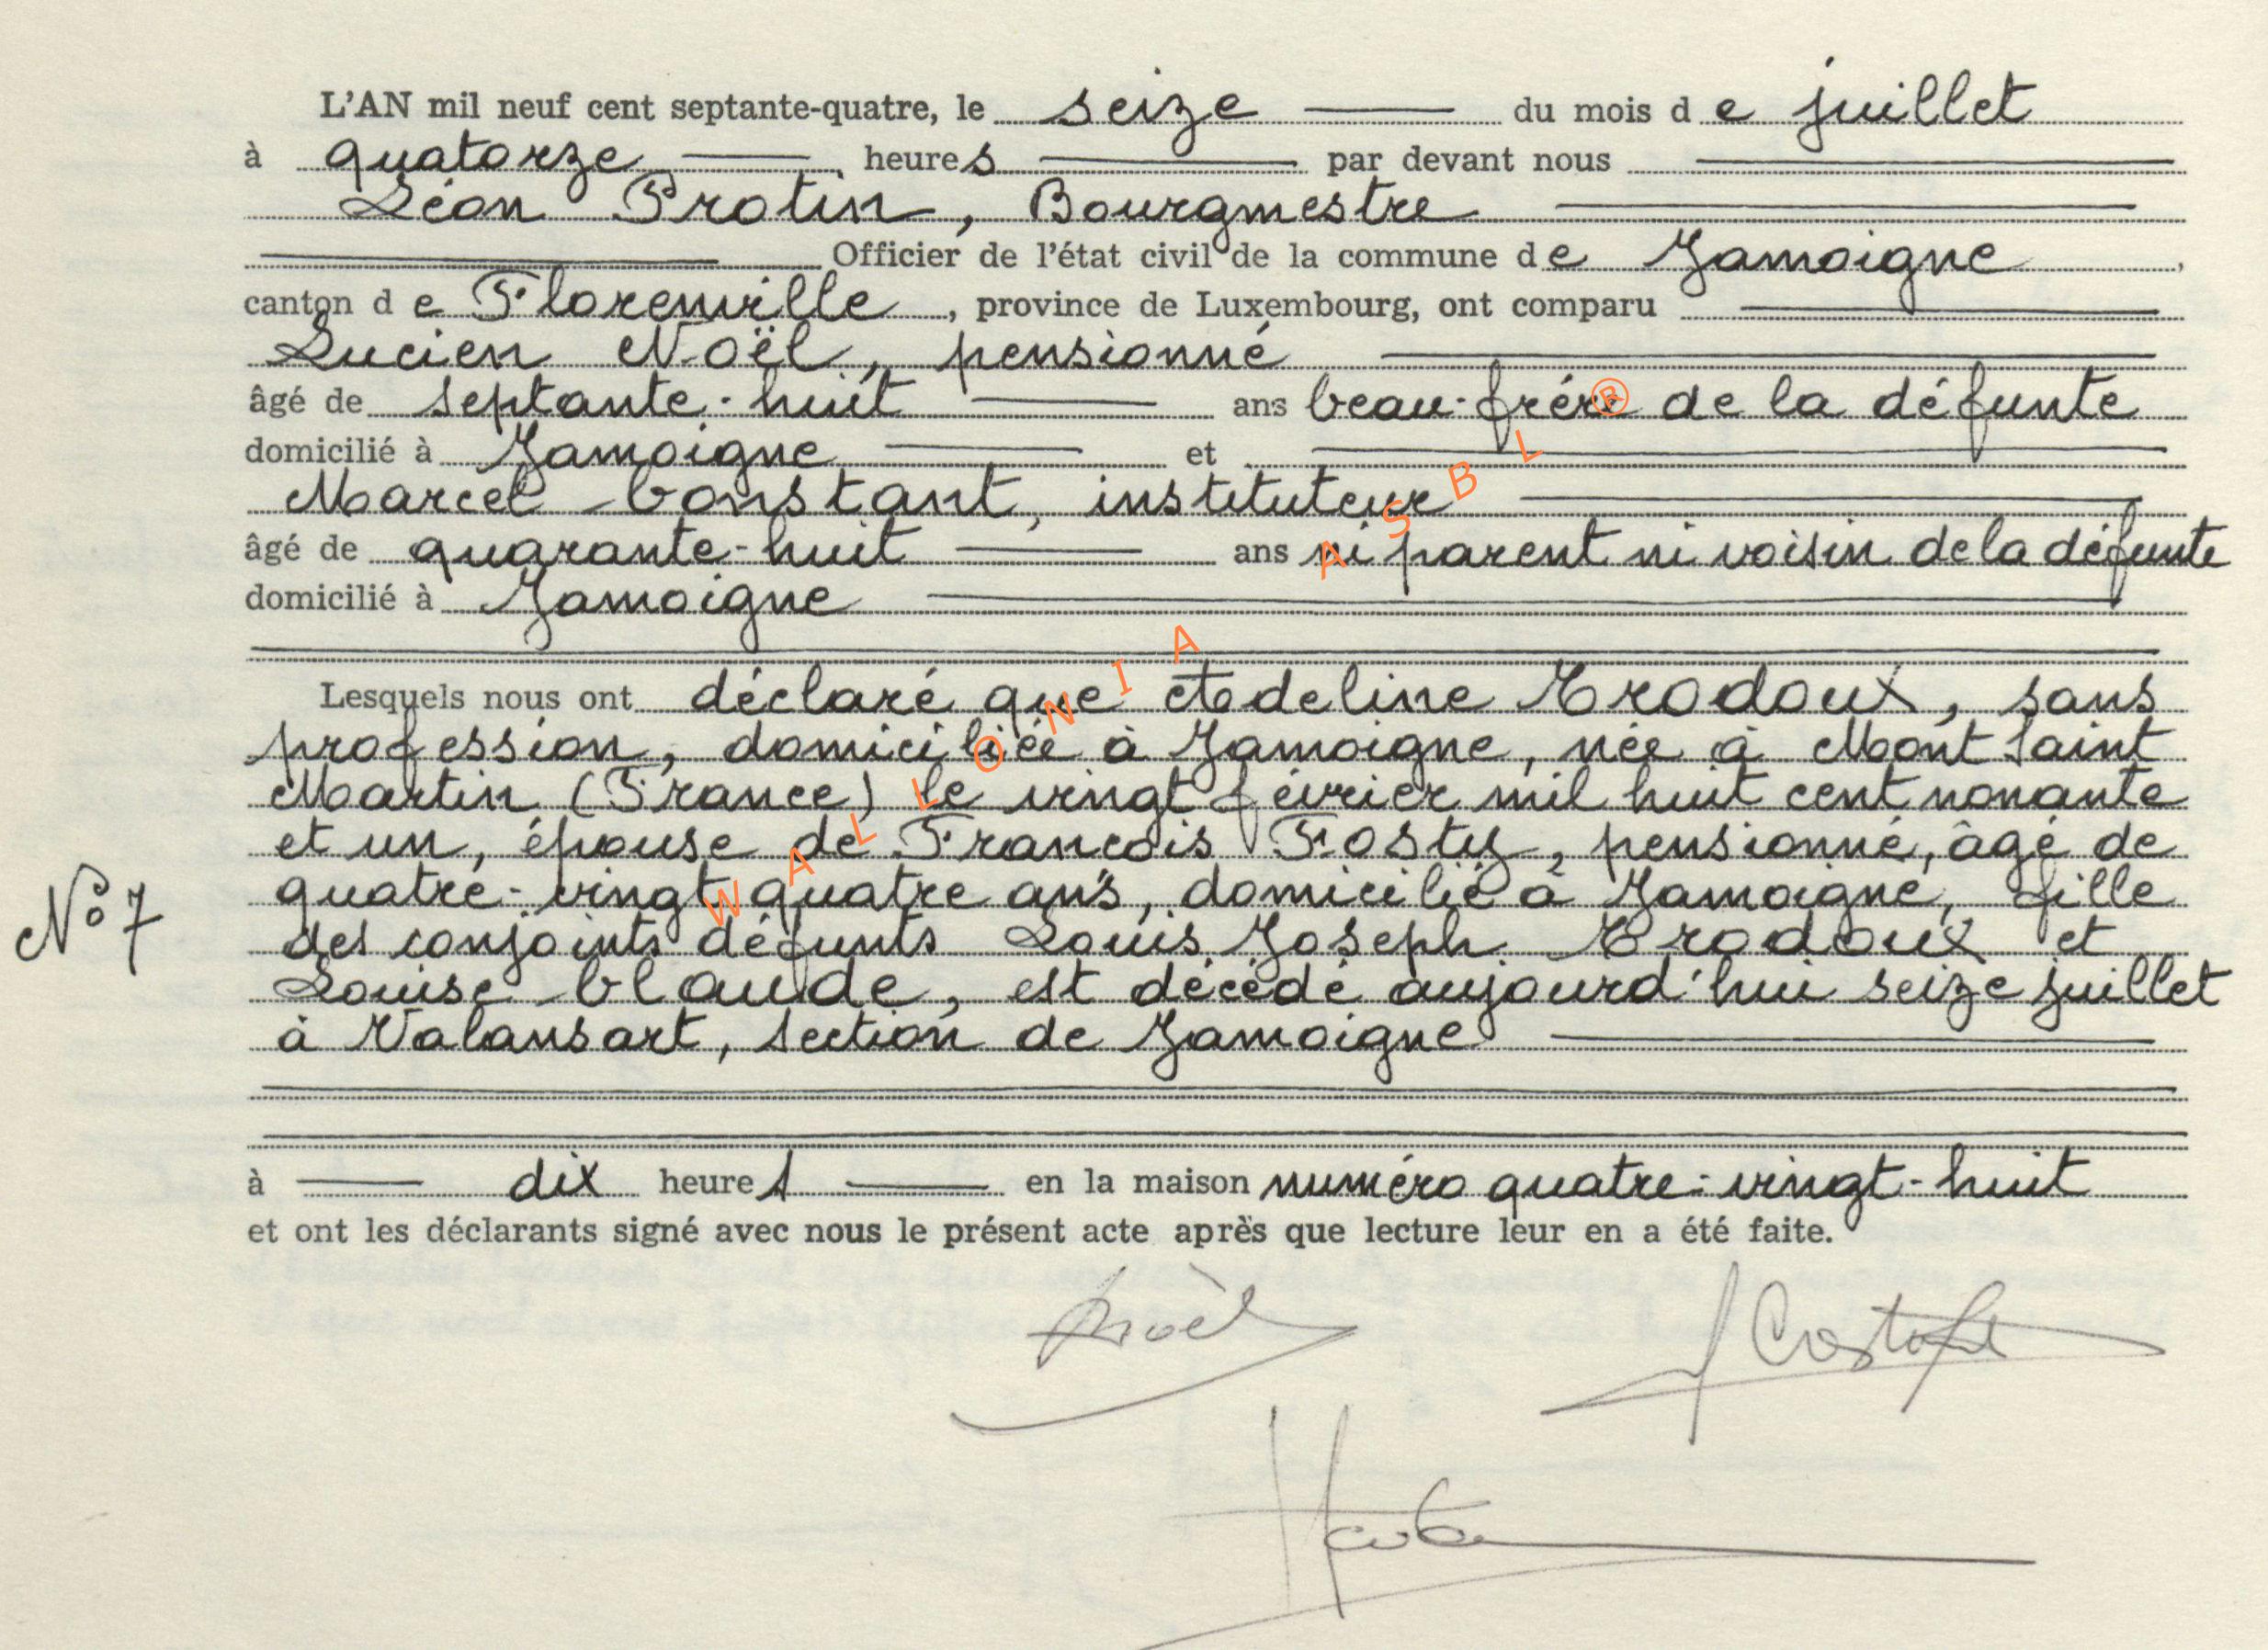 L'AN mil neuf cent septante-quatre, le seize du mois de juillet
à quatorze heures par devant nous
Léon Protin, Bourgmestre
Officier de l'état civil de la commune de Jamoigne,
canton de Florenville, province de Luxembourg, ont comparu
Lucien Noël, pensionné
âgé de septante-huit ans beau-frère de la défunte
domicilié à Jamoigne et
Marcel Constant, instituteur
âgé de quarante-huit ans ni parent ni voisin de la défunte
domicilié à Jamoigne
Lesquels nous ont déclaré que Adeline Trodoux, sans
profession, domiciliée à Jamoigne, née à Mont Saint
Martin (France) le vingt février mil huit cent nonante
et un, épouse de François Fosty, pensionné, âgé de
N° 7
quatre-vingt quatre ans, domicilié à Jamoigne, fille
des conjoints défunts Louis Joseph Trodoux et
Louise Claude, est décédé aujourd'hui seize juillet
à Valansart, section de Jamoigne
à dix heures en la maison numéro quatre-vingt-huit
et ont les déclarants signé avec nous le présent acte après que lecture leur en a été faite.
Noël
WALLONIA ASBL ®